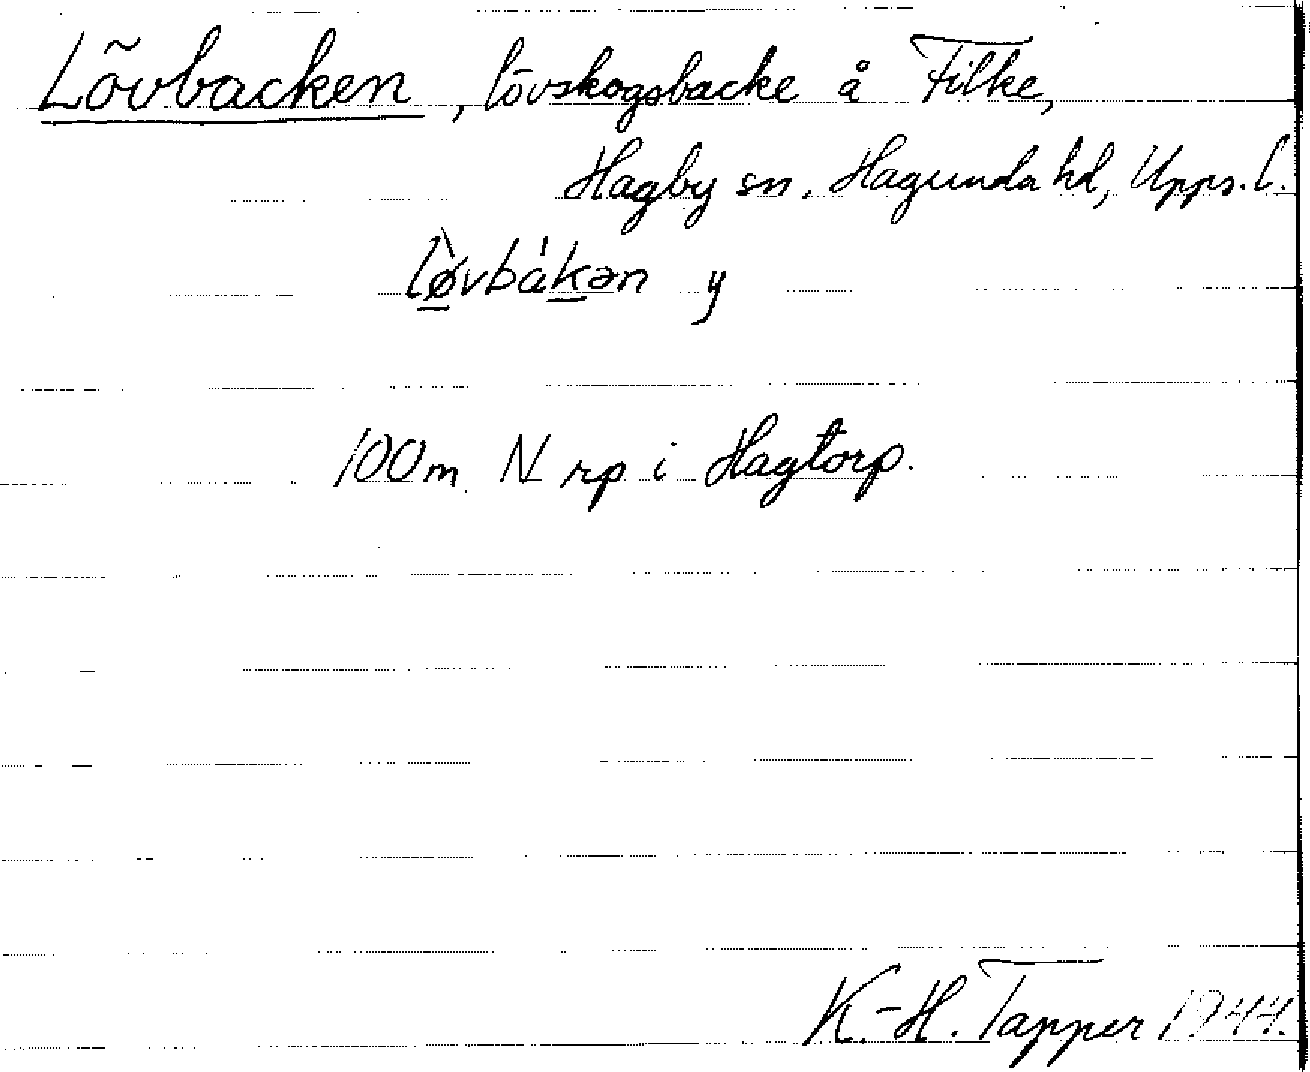 Lövbacken, lövskogsbacke å Filke,
Hagby sn. Hagunda hd, Upps. l.
lø̀vbákən y
100 m N rp i Hagtorp.
K.-H. Tapper 1944.